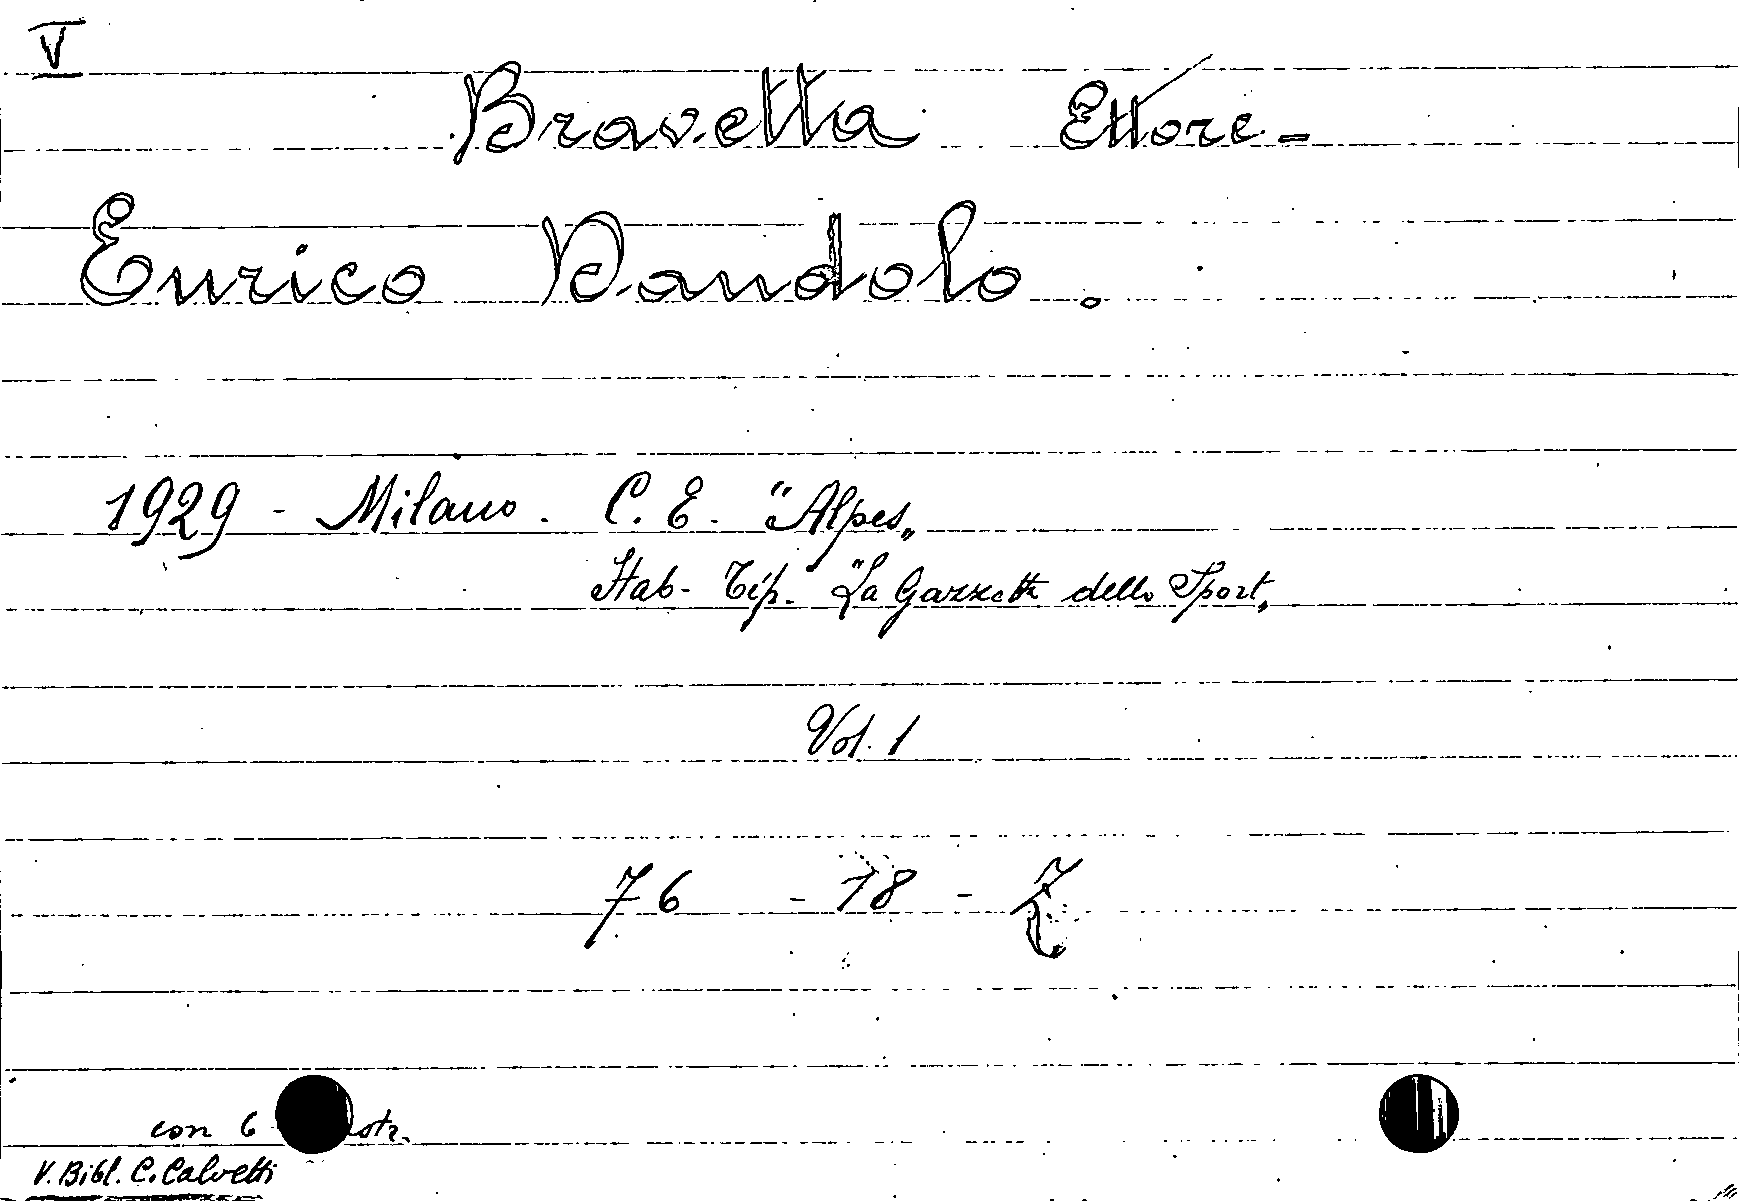 V
Bravetta Ettore -
Enrico Dandolo .
1929 - Milano . C. E. "Alpes„
Stab. Tip. "La Gazzetta dello Sport„
Vol. 1
76 - 18 -
con 6
V. Bibl. C. Calvetti